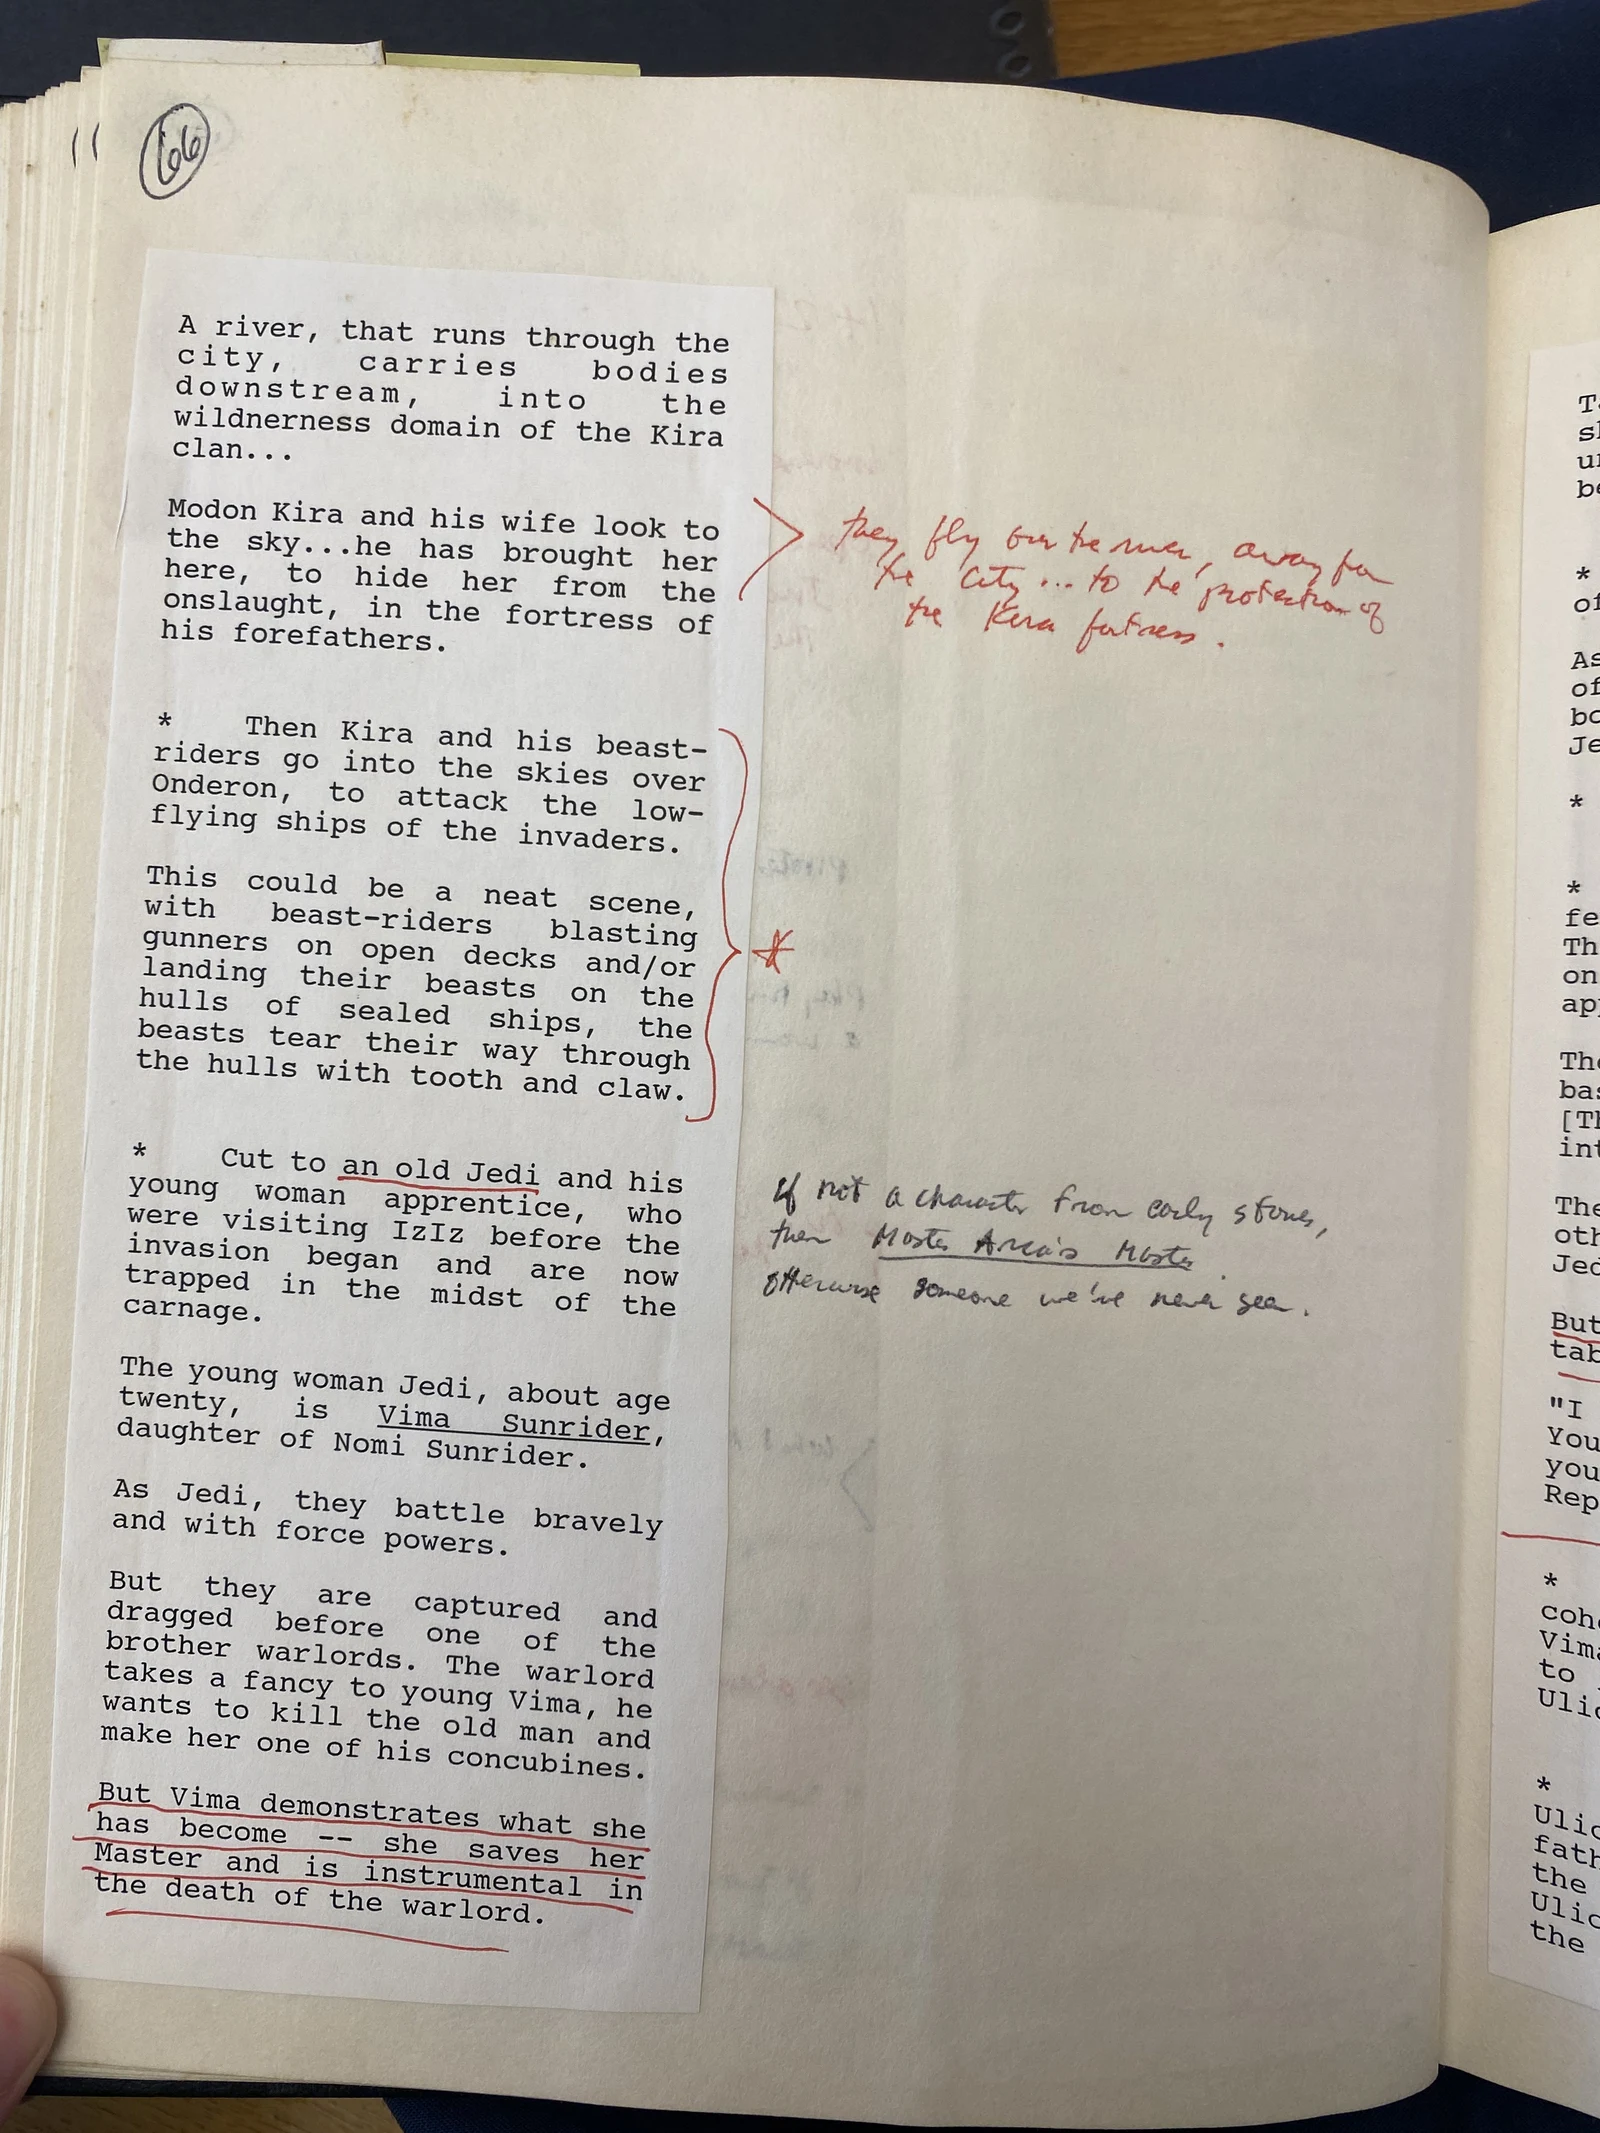 66
A river, that runs through the
city, carries bodies
downstream, into the
wildnerness domain of the Kira
clan...
Modon Kira and his wife look to
the sky...he has brought her
here, to hide her from the
onslaught, in the fortress of
his forefathers.
they fly over the river, away from
the city... to the protection of
the Kira fortress.
* Then Kira and his beast-
riders go into the skies over
Onderon, to attack the low-
flying ships of the invaders.
This could be a neat scene,
with beast-riders blasting
gunners on open decks and/or
landing their beasts on the
hulls of sealed ships, the
beasts tear their way through
the hulls with tooth and claw.
* Cut to an old Jedi and his
young woman apprentice, who
were visiting IzIz before the
invasion began and are now
trapped in the midst of the
carnage.
If not a character from early stories,
then Master Arca's Master.
otherwise someone we've never seen.
The young woman Jedi, about age
twenty, is Vima Sunrider,
daughter of Nomi Sunrider.
As Jedi, they battle bravely
and with force powers.
But they are captured and
dragged before one of the
brother warlords. The warlord
takes a fancy to young Vima, he
wants to kill the old man and
make her one of his concubines.
But Vima demonstrates what she
has become -- she saves her
Master and is instrumental in
the death of the warlord.
*
of
As
of
*
*
on
[Th
But
"I
You
you
Rep
*
Vima
to
*
the
the